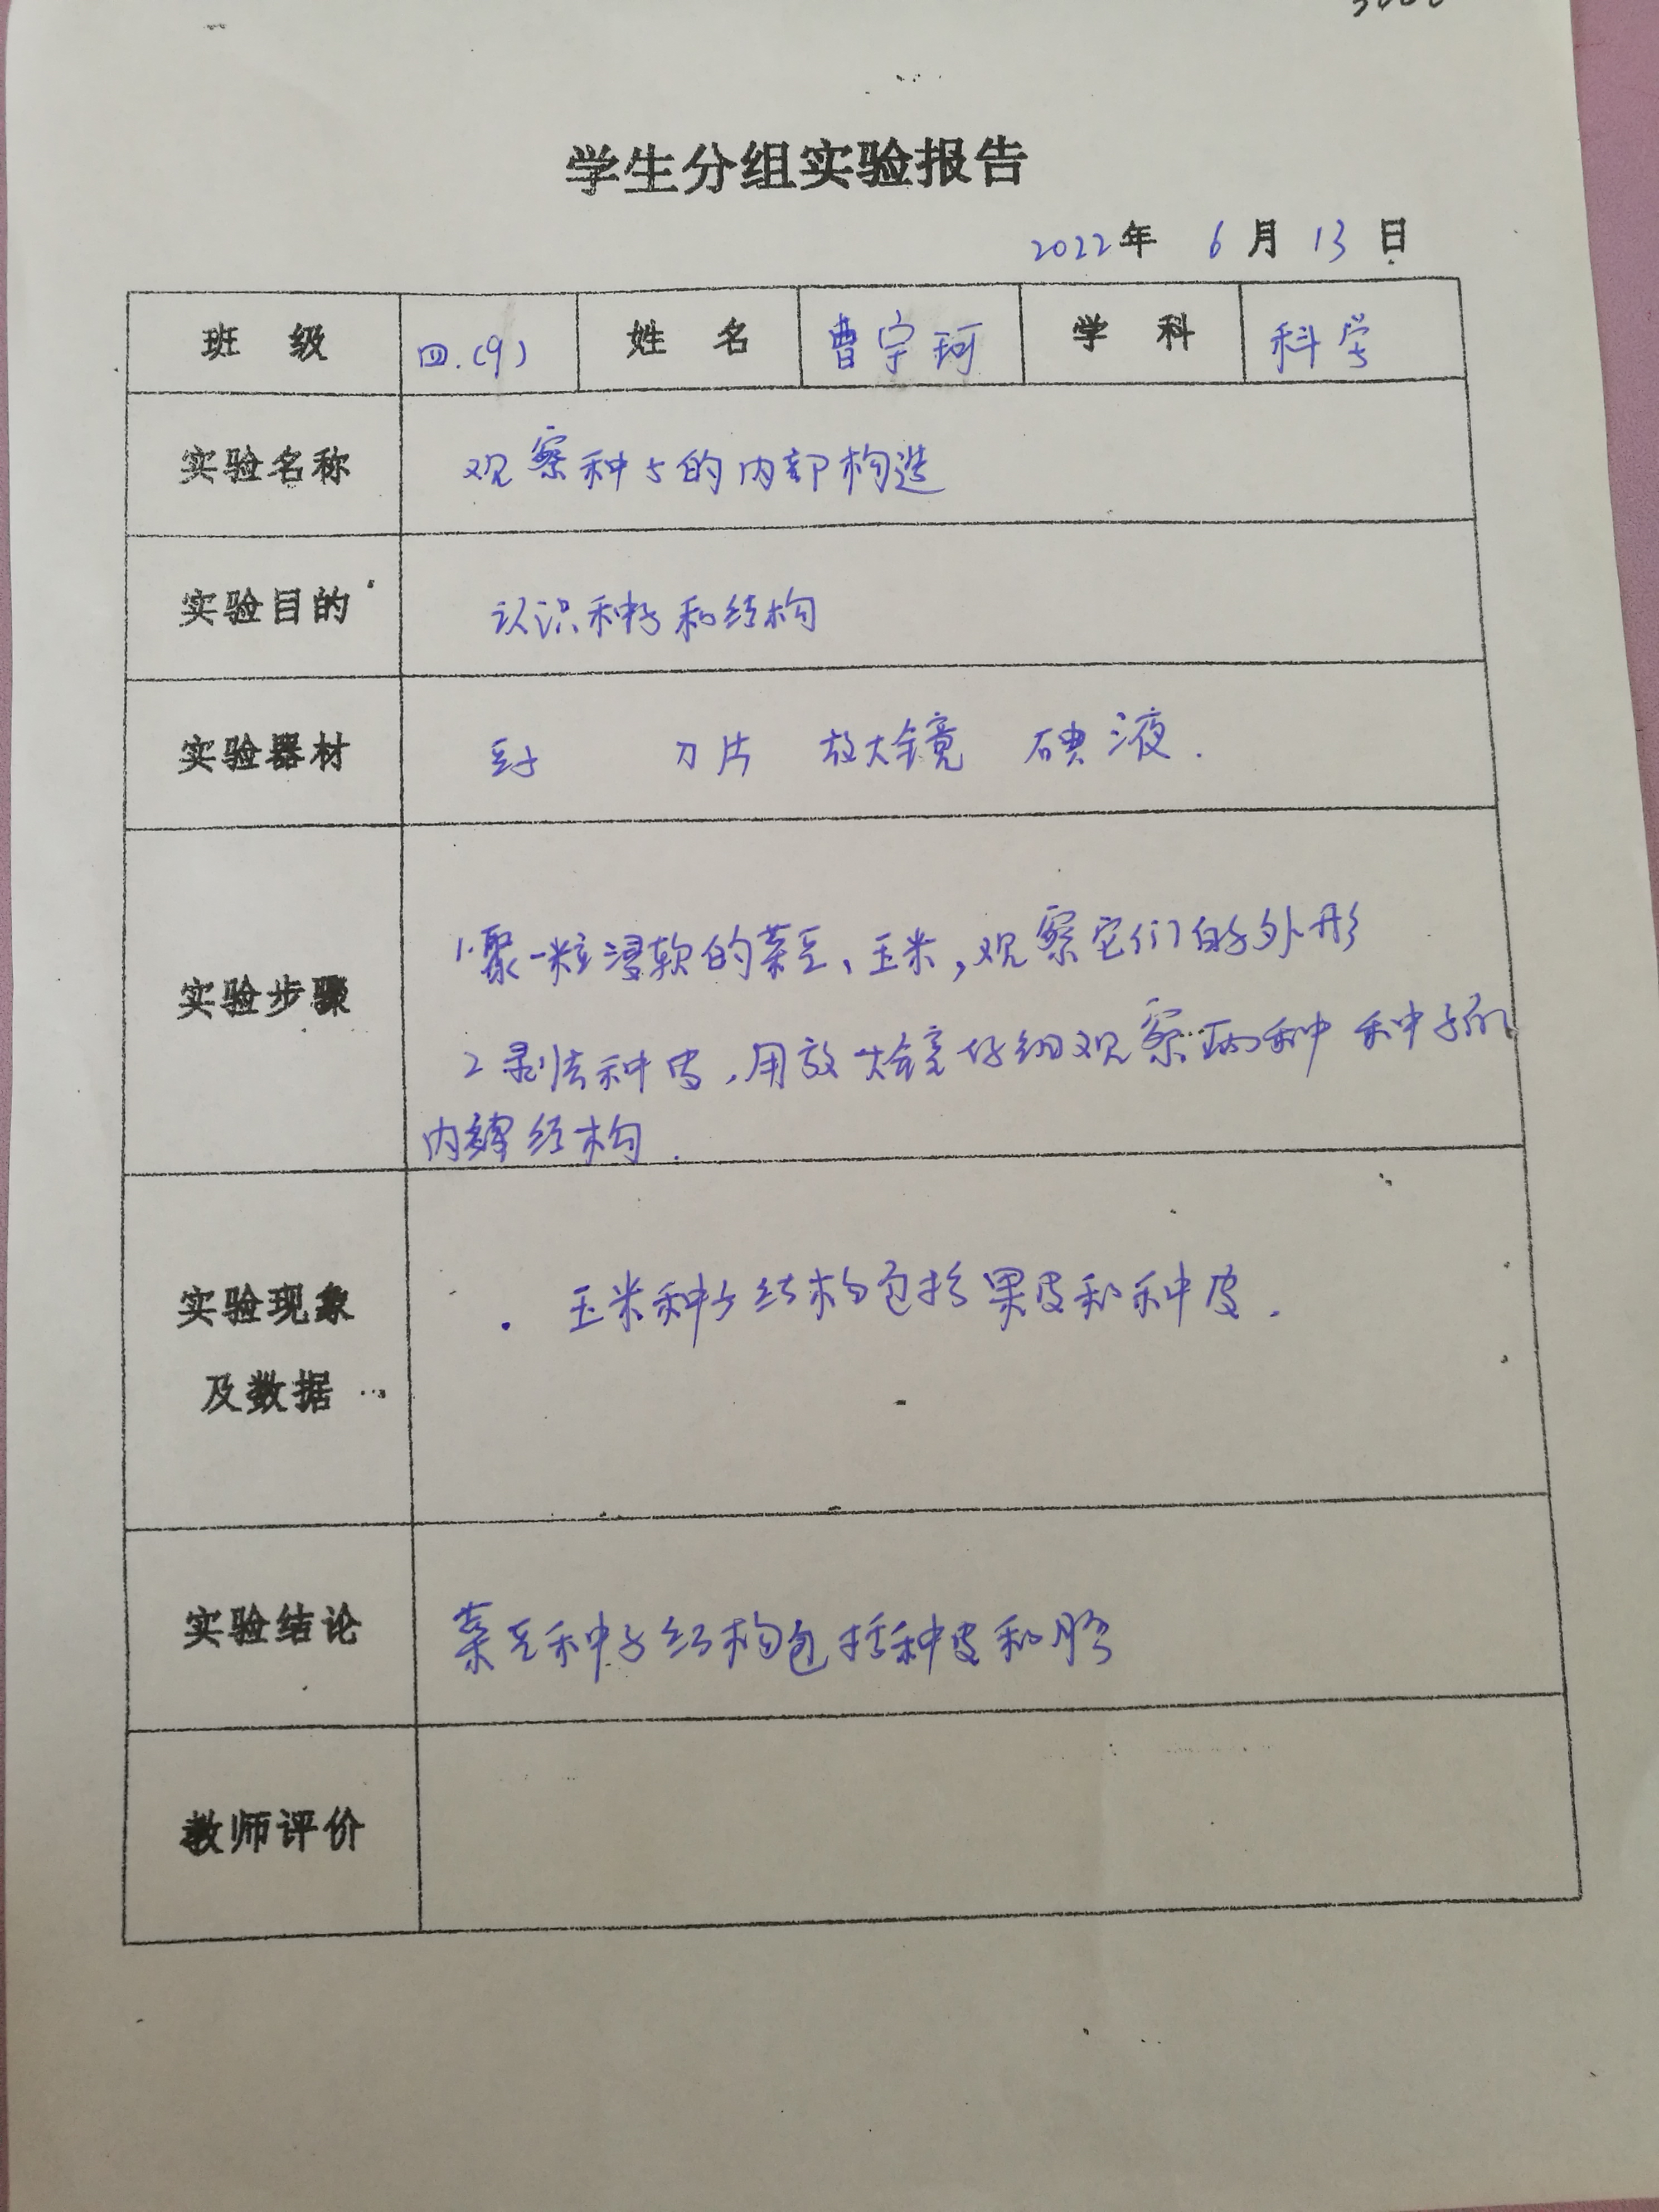 学生分组实验报告
2022年 6月 13日
班 级 四.(9) 姓 名 曹宇珂 学 科 科学
实验名称 观察种子的内部构造
实验目的 认识种子和结构
实验器材 豆子 刀片 放大镜 碘液.
实验步骤 1.取一粒浸软的菜豆、玉米,观察它们的外形
2 剥去种皮,用放大镜仔细观察两种种子的
内部结构.
实验现象
及数据 玉米种子结构包括果皮和种皮.
实验结论 菜豆种子结构包括种皮和胚
教师评价